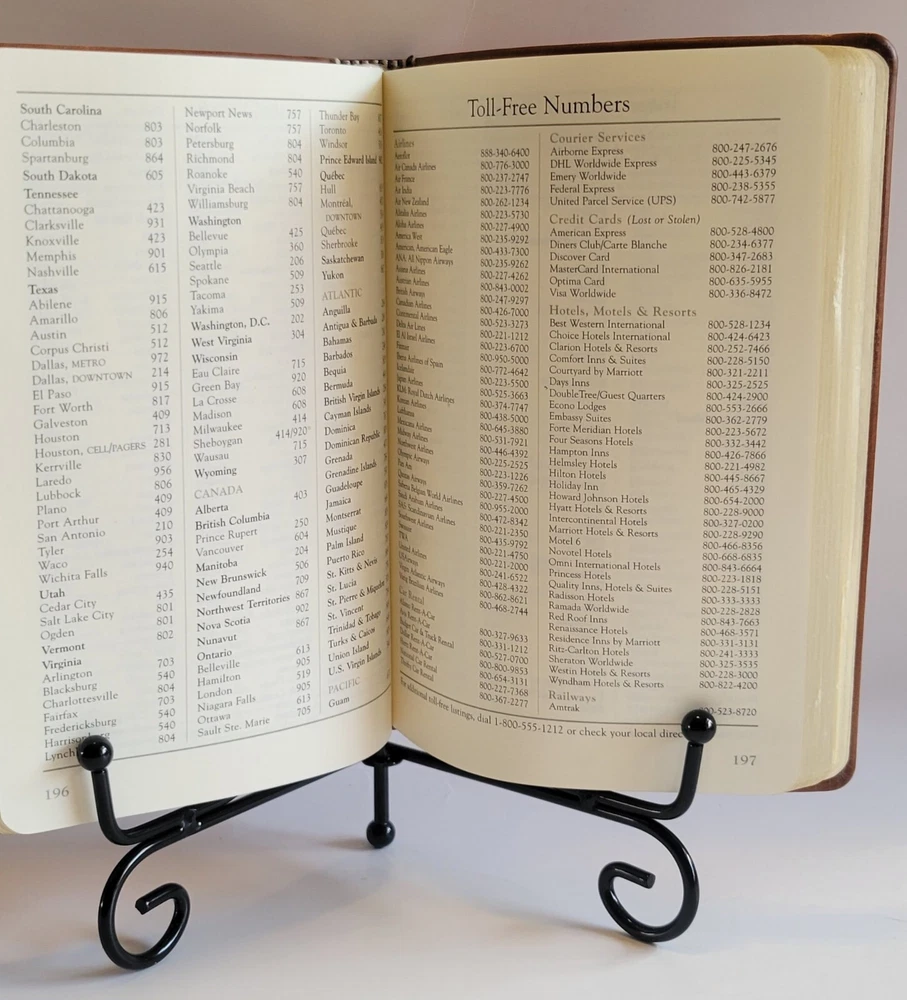 South Carolina
Charleston 803
Columbia 803
Spartanburg 864
South Dakota 605
Tennessee
Chattanooga 423
Clarksville 931
Knoxville 423
Memphis 901
Nashville 615
Texas
Abilene 915
Amarillo 806
Austin 512
Corpus Christi 512
Dallas, METRO 972
Dallas, DOWNTOWN 214
El Paso 915
Fort Worth 817
Galveston 409
Houston 713
Houston, CELL/PAGERS 281
Kerrville 830
Laredo 956
Lubbock 806
Plano 409
Port Arthur 409
San Antonio 210
Tyler 903
Waco 254
Wichita Falls 940
Utah
Cedar City 435
Salt Lake City 801
Ogden 801
Vermont 802
Virginia
Arlington 703
Blacksburg 540
Charlottesville 804
Fairfax 703
Fredericksburg 540
540
804
Newport News 757
Norfolk 757
Petersburg 804
Richmond 804
Roanoke 540
Virginia Beach 757
Williamsburg 804
Washington
Bellevue 425
Olympia 360
Seattle 206
Spokane 509
Tacoma 253
Yakima 509
Washington, D.C. 202
West Virginia 304
Wisconsin
Eau Claire 715
Green Bay 920
La Crosse 608
Madison 608
Milwaukee 414
Sheboygan 414/920*
Wausau 715
Wyoming 307
CANADA
Alberta 403
British Columbia
Prince Rupert 250
Vancouver 604
Manitoba 204
New Brunswick 506
Newfoundland 709
Northwest Territories 867
Nova Scotia 902
Nunavut 867
Ontario
Belleville 613
Hamilton 905
London 519
Niagara Falls 905
Ottawa 613
Sault Ste. Marie 705
Thunder Bay
Toronto
Windsor
Prince Edward Island
Québec
Hull
Montréal,
DOWNTOWN
Québec
Sherbrooke
Saskatchewan
Yukon
ATLANTIC
Anguilla
Antigua & Barbuda
Bahamas
Barbados
Bequia
Bermuda
British Virgin Islands
Cayman Islands
Dominica
Dominican Republic
Grenada
Grenadine Islands
Guadeloupe
Jamaica
Montserrat
Mustique
Palm Island
Puerto Rico
St. Kitts & Nevis
St. Lucia
St. Pierre & Miquelon
St. Vincent
Trinidad & Tobago
Turks & Caicos
Union Island
U.S. Virgin Islands
PACIFIC
Guam
196
Toll-Free Numbers
Airlines
Aeroflot 888-340-6400
Air Canada Airlines 800-776-3000
Air France 800-237-2747
Air India 800-223-7776
Air New Zealand 800-262-1234
Alaska Airlines 800-223-5730
Aloha Airlines 800-227-4900
America West 800-235-9292
American, American Eagle 800-433-7300
ANA: All Nippon Airways 800-235-9262
Asiana Airlines 800-227-4262
Austrian Airlines 800-843-0002
British Airways 800-247-9297
Canadian Airlines 800-426-7000
Continental Airlines 800-523-3273
Delta Air Lines 800-221-1212
El Al Israel Airlines 800-223-6700
Finnair 800-950-5000
Iberia Airlines of Spain 800-772-4642
Icelandair 800-223-5500
Japan Airlines 800-525-3663
KLM Royal Dutch Airlines 800-374-7747
Korean Airlines 800-438-5000
Lufthansa 800-645-3880
Mexicana Airlines 800-531-7921
Midway Airlines 800-446-4392
Northwest Airlines 800-225-2525
Olympic Airways 800-223-1226
Pan Am 800-359-7262
Qantas Airways 800-227-4500
Sabena Belgian World Airlines 800-955-2000
Saudi Arabian Airlines 800-472-8342
SAS: Scandinavian Airlines 800-221-2350
Southwest Airlines 800-435-9792
Swissair 800-221-4750
TWA 800-221-2000
United Airlines 800-241-6522
USAirways 800-428-4322
Virgin Atlantic Airways 800-862-8621
Varig Brazilian Airlines 800-468-2744
Car Rental
Alamo Rent-A-Car 800-327-9633
Avis Rent-A-Car 800-331-1212
Budget Car & Truck Rental 800-527-0700
Dollar Rent-A-Car 800-800-9953
Hertz Rent-A-Car 800-654-3131
National Car Rental 800-227-7368
Thrifty Car Rental 800-367-2277
Courier Services
Airborne Express 800-247-2676
DHL Worldwide Express 800-225-5345
Emery Worldwide 800-443-6379
Federal Express 800-238-5355
United Parcel Service (UPS) 800-742-5877
Credit Cards (Lost or Stolen)
American Express 800-528-4800
Diners Club/Carte Blanche 800-234-6377
Discover Card 800-347-2683
MasterCard International 800-826-2181
Optima Card 800-635-5955
Visa Worldwide 800-336-8472
Hotels, Motels & Resorts
Best Western International 800-528-1234
Choice Hotels International 800-424-6423
Clarion Hotels & Resorts 800-252-7466
Comfort Inns & Suites 800-228-5150
Courtyard by Marriott 800-321-2211
Days Inns 800-325-2525
DoubleTree/Guest Quarters 800-424-2900
Econo Lodges 800-553-2666
Embassy Suites 800-362-2779
Forte Meridian Hotels 800-223-5672
Four Seasons Hotels 800-332-3442
Hampton Inns 800-426-7866
Helmsley Hotels 800-221-4982
Hilton Hotels 800-445-8667
Holiday Inn 800-465-4329
Howard Johnson Hotels 800-654-2000
Hyatt Hotels & Resorts 800-228-9000
Intercontinental Hotels 800-327-0200
Marriott Hotels & Resorts 800-228-9290
Motel 6 800-466-8356
Novotel Hotels 800-668-6835
Omni International Hotels 800-843-6664
Princess Hotels 800-223-1818
Quality Inns, Hotels & Suites 800-228-5151
Radisson Hotels 800-333-3333
Ramada Worldwide 800-228-2828
Red Roof Inns 800-843-7663
Renaissance Hotels 800-468-3571
Residence Inns by Marriott 800-331-3131
Ritz-Carlton Hotels 800-241-3333
Sheraton Worldwide 800-325-3535
Westin Hotels & Resorts 800-228-3000
Wyndham Hotels & Resorts 800-822-4200
Railways
Amtrak 800-523-8720
For additional toll-free listings, dial 1-800-555-1212 or check your local
197